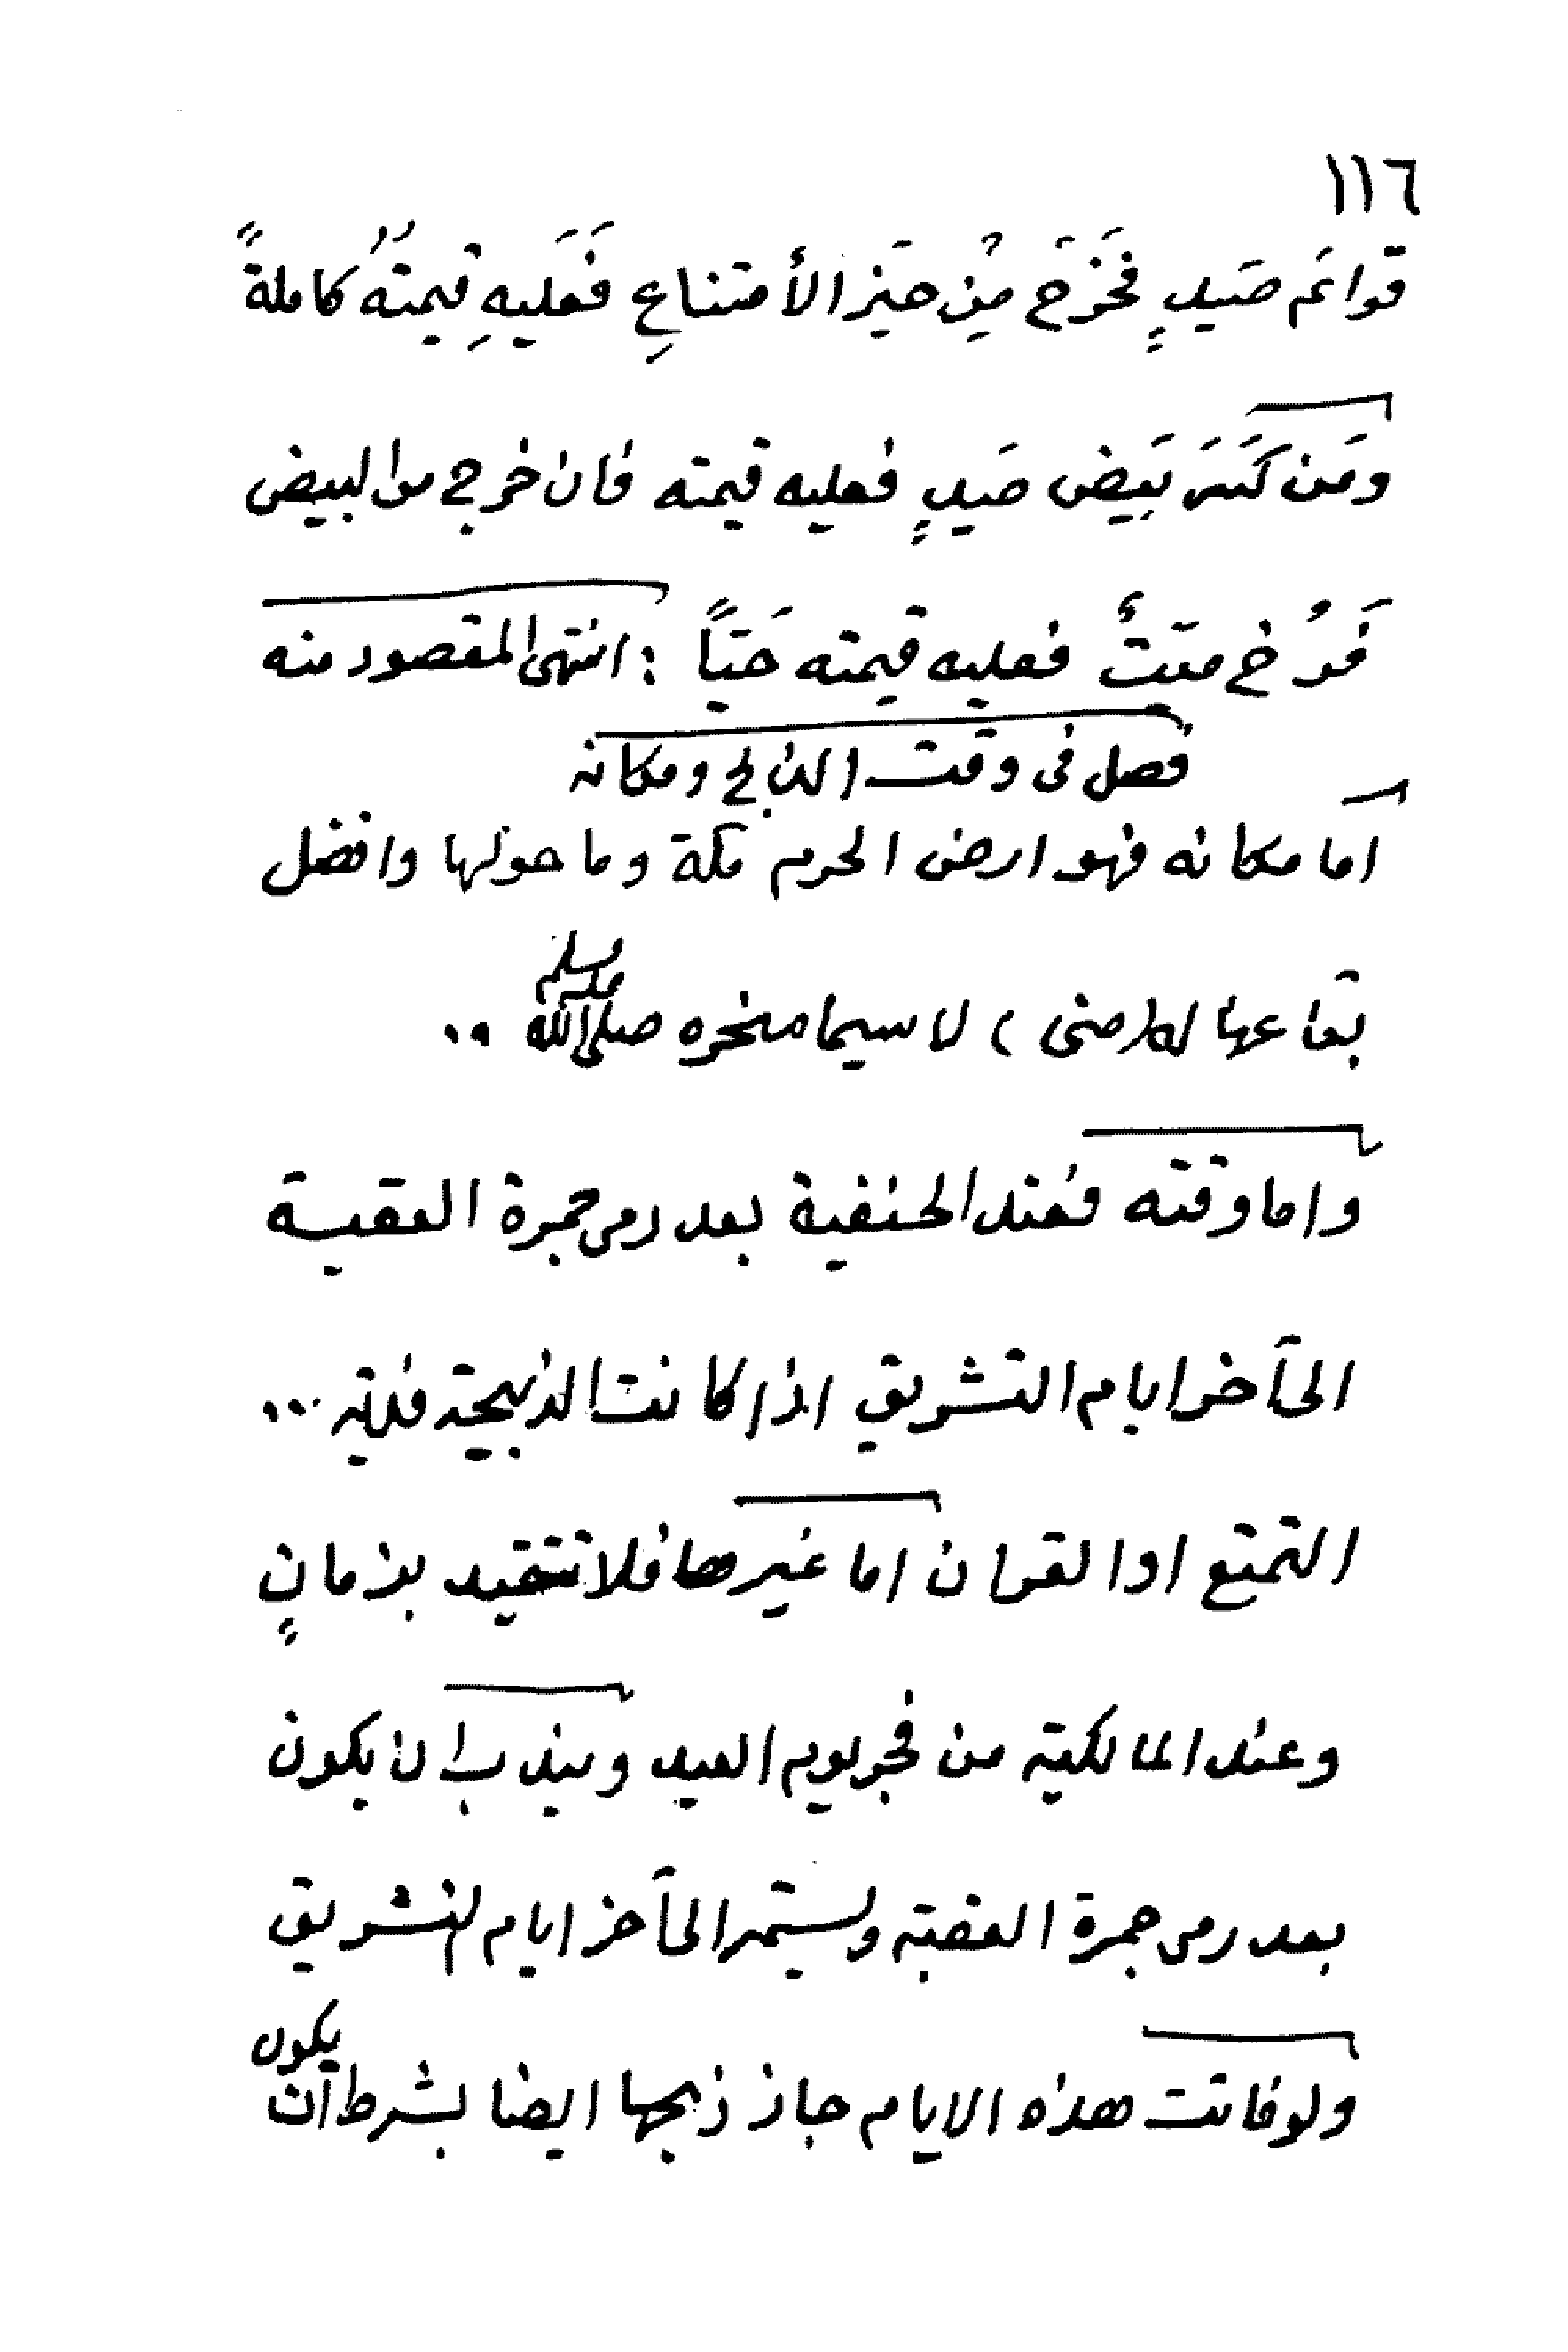 ١١٦
قوائمَ صَيدٍ فخَرَجَ مِنْ حيّز الأمتناعِ فَعَليهِ قِيمتُهُ كاملةً
ومَن كَسَرَ بَيض صَيدٍ فعليه قيمته فان خرج من البيض
فَرْخ ميّتٌ فعليه قيمته حَيّاً : انتهى المقصود منه
فصل فى وقت الذبح ومكانه
اما مكانه فهو ارض الحرم مكة وما حولها وافضل
بقاعها لاسيما منحره صلى الله عليه وسلم ..
واما وقته فعند الحنفية بعد رمى جمرة العقبة
الى آخر ايام التشريق اذا كانت الذبيحة فدية ...
التمتع او القران اما غيرها فلا تتقيد بزمانٍ
وعند المالكية من فجر يوم العيد ويندب ان يكون
بعد رمى جمرة العقبة ويستمر الى آخر ايام التشريق
ولو فاتت هذه الايام جاز ذبحها ايضا بشرط ان يكون